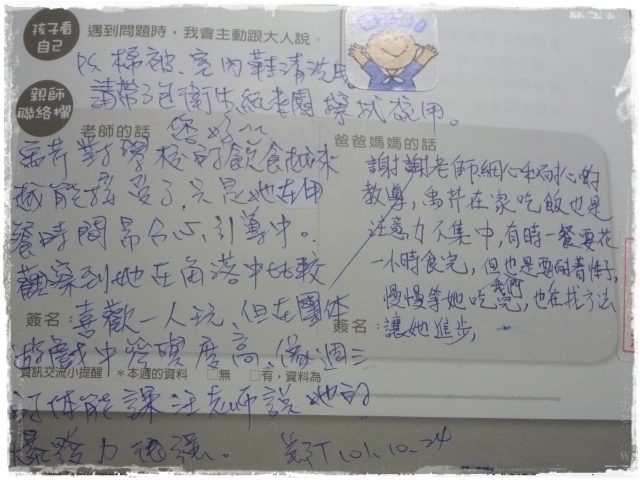 孩子看
自己
遇到問題時，我會主動跟大人說。
PS 棉被、室內鞋清洗
請帶1包衛生紙來園擦拭使用。
親師
聯絡欄
老師的話
您好
禹芹對學校的飲食越來
越能接受了，只是她在用
餐時間易分心，引導中。
觀察到她在角落中比較
喜歡一人玩、但在團體
遊戲中 度高、像週三
的体能課汪老師說她的
爆發力 強。
101.10.24
簽名：
爸爸媽媽的話
謝謝老師細心和耐心的
教導，禹芹在家吃飯也是
注意力不集中，有時一餐要花
一小時食完，但也是要耐著性子，
慢慢等她吃完，我們也在找方法
讓她進步，
簽名：
資訊交流小提醒 ＊本週的資料 □無 □有，資料為